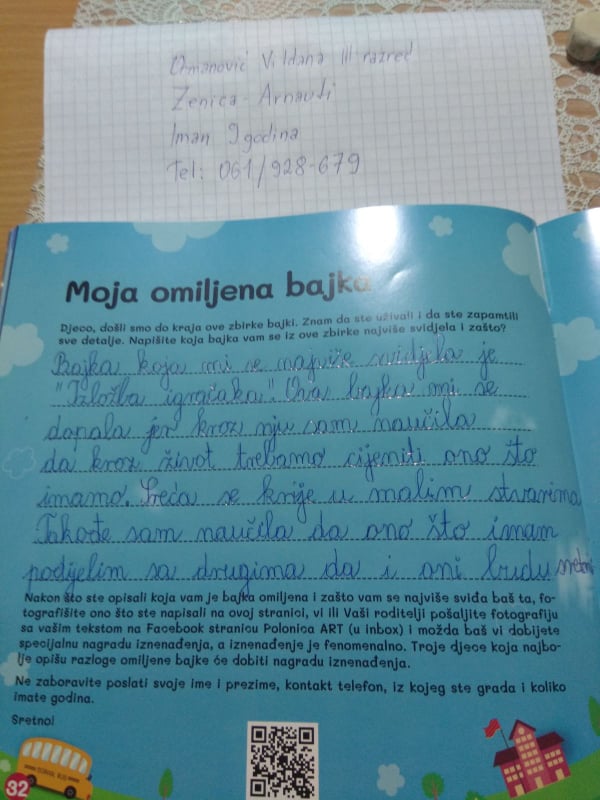 Osmanović Vildana III razred
Zenica - Arnauti
Imam 9 godina
Tel: 061/928-679
Moja omiljena bajka
Djeco, došli smo do kraja ove zbirke bajki. Znam da ste uživali i da ste zapamtili
sve detalje. Napišite koja bajka vam se iz ove zbirke najviše svidjela i zašto?
Bajka koja mi se najviše svidjela je
"Izložba igračaka". Ova bajka mi se
dopala jer kroz nju sam naučila
da kroz život trebamo cijeniti ono što
imamo. Sreća se krije u malim stvarima
Takođe sam naučila da ono što imam
podijelim sa drugima da i oni budu sretni
Nakon što ste opisali koja vam je bajka omiljena i zašto vam se najviše sviđa baš ta, fo-
tografišite ono što ste napisali na ovoj stranici, vi ili Vaši roditelji pošaljite fotografiju
sa vašim tekstom na Facebook stranicu Polonica ART (u inbox) i možda baš vi dobijete
specijalnu nagradu iznenađenja, a iznenađenje je fenomenalno. Troje djece koja najbo-
lje opišu razloge omiljene bajke će dobiti nagradu iznenađenja.
Ne zaboravite poslati svoje ime i prezime, kontakt telefon, iz kojeg ste grada i koliko
imate godina.
Sretno!
SCHOOL BUS
32